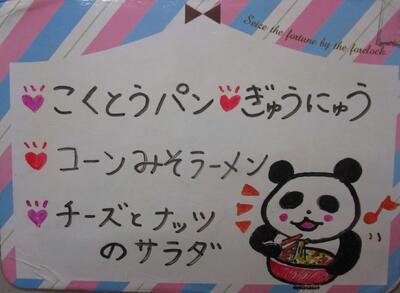 Seize the fortune by the forelock.
こくとうパン ぎゅうにゅう
コーンみそラーメン
チーズとナッツ
のサラダ